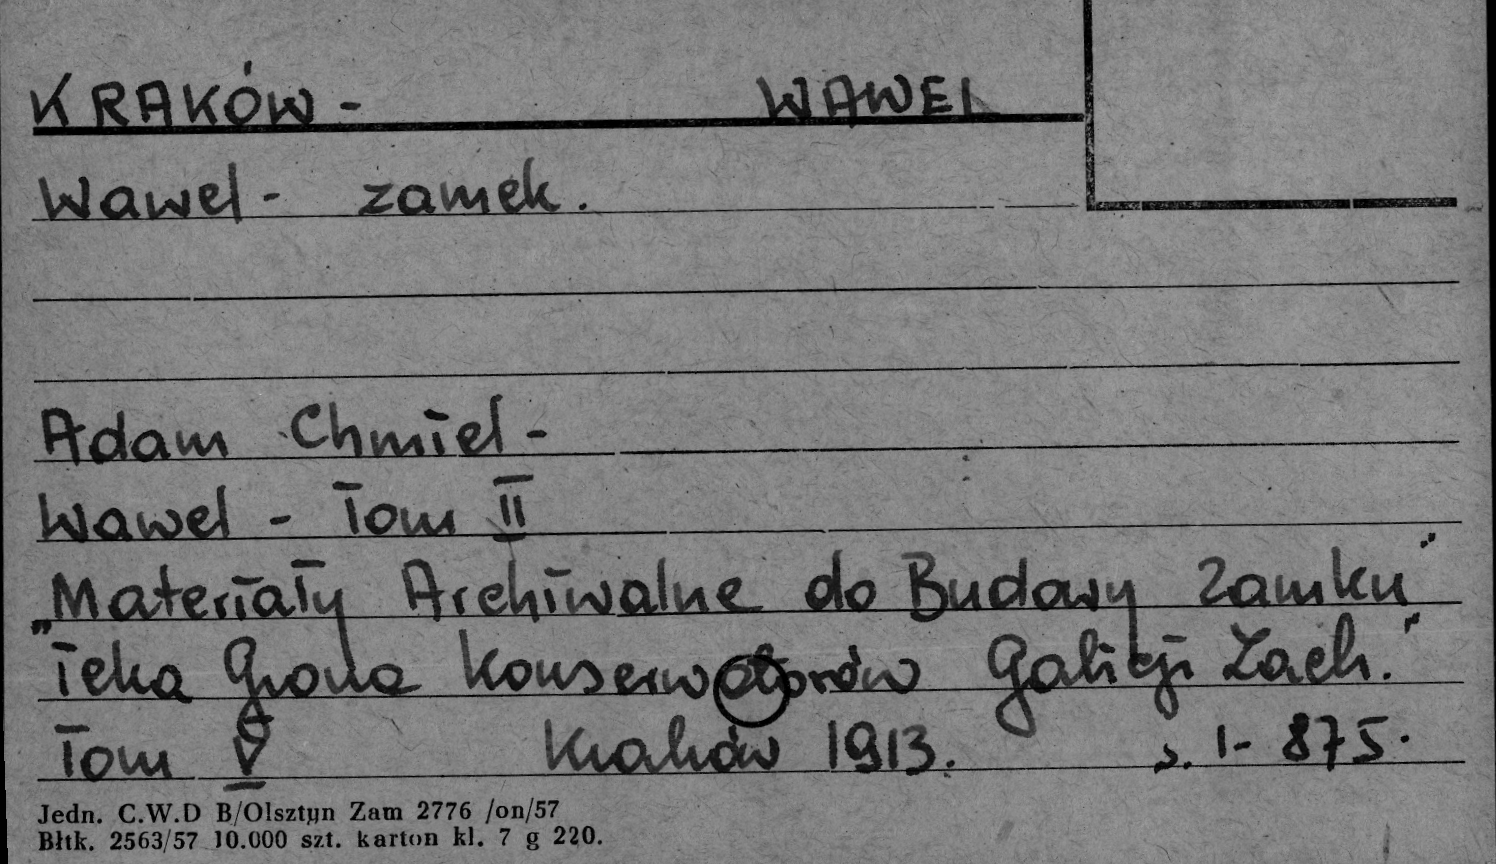 KRAKÓW - WAWEL
Wawel - zamek.
Adam Chmiel -
Wawel - Tom II
„Materiały Archiwalne do Budowy Zamku"
"Teka Grona Konserwatorów Galicji Zach."
Tom V Kraków 1913. s. 1-875.
Jedn. C.W.D B/Olsztyn Zam 2776 /on/57
Błtk. 2563/57 10.000 szt. karton kl. 7 g 220.